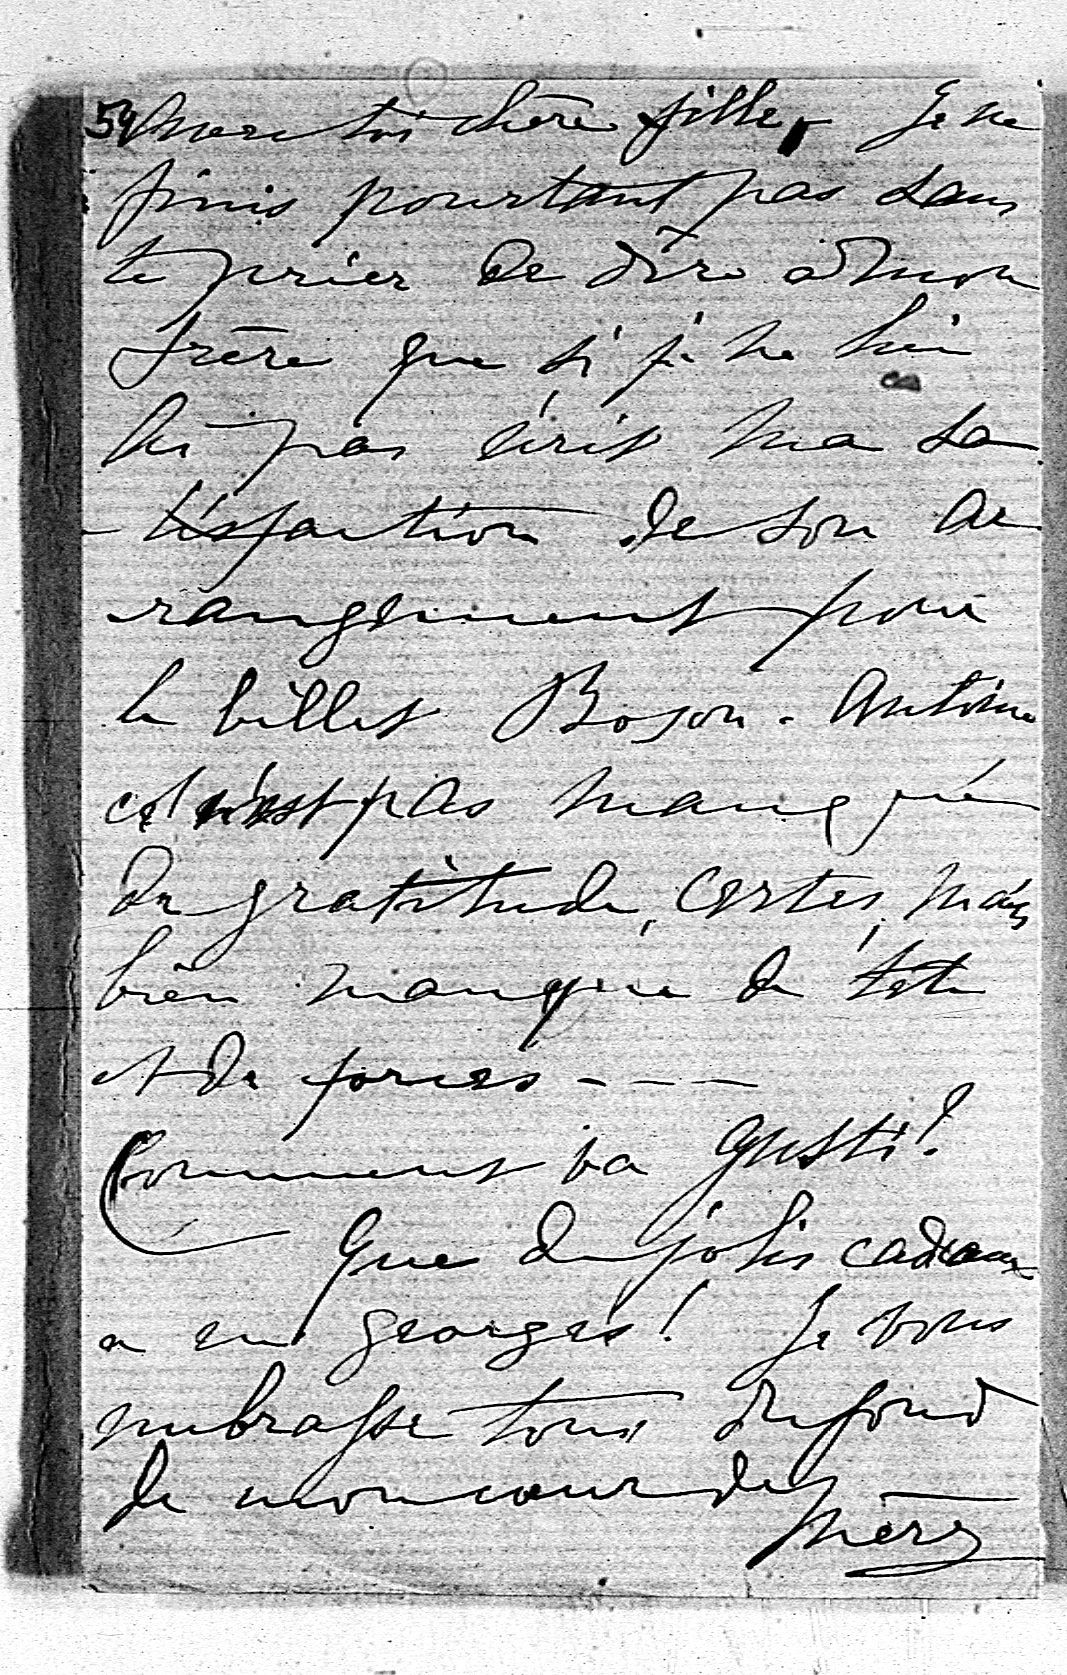 54 merci toi chère fille, Je ne
finis pourtant pas sans
te prier de dire à mon
frère que si je ne lui
ai pas écrit ma sa
-tisfaction de son ar
rangement pour
le billet Boson. Antoine
ce n'est pas manque
de gratitude, certes, mais
bien manque de tête
et de forces - - - -
Comment va Gusti?
Que de jolis cadeaux
a eu Georges! Je vous
embrasse tous du fond
de mon cœur de
mère